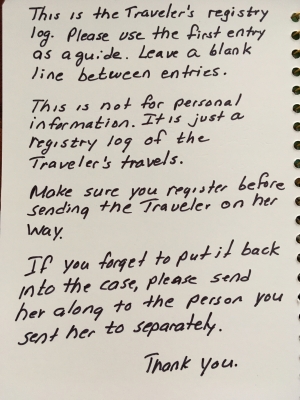 This is the Traveler's registry
log. Please use the first entry
as a guide. Leave a blank
line between entries.
This is not for personal
information. It is just a
registry log of the
Traveler's travels.
Make sure you register before
sending the Traveler on her
way.
If you forget to put it back
into the case, please send
her along to the person you
sent her to separately.
Thank you.